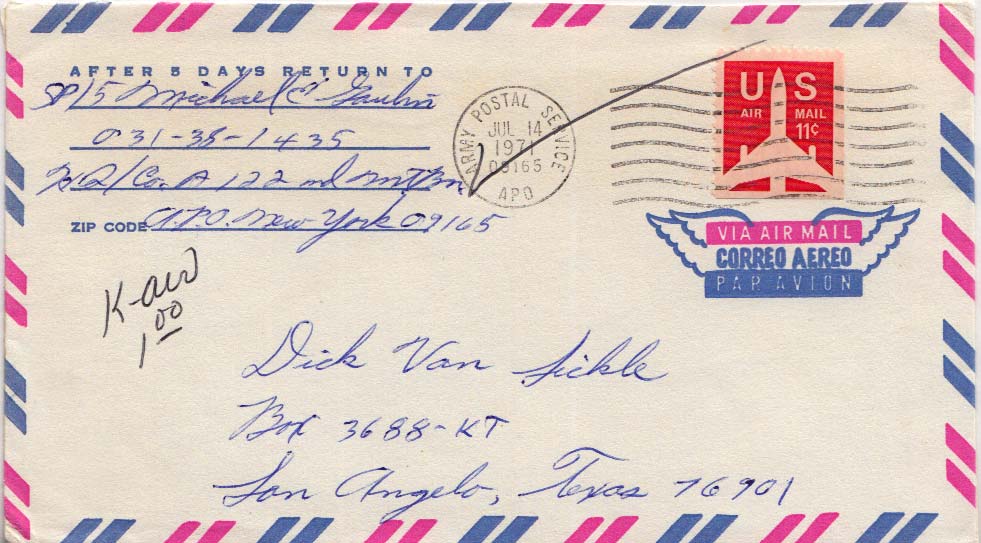 AFTER 5 DAYS RETURN TO
SP/5 Michael E
031-38-1435
HQ/Co. A 122nd MT. Bn
ZIP CODE A.P.O. New York 09165
ARMY POSTAL SERVICE
JUL 14
1971
09165
APO
US
AIR MAIL
11¢
VIA AIR MAIL
CORREO AEREO
PAR AVION
K-air
1.00
Dick Van Sickle
Box 3688-KT
San Angelo, Texas 76901